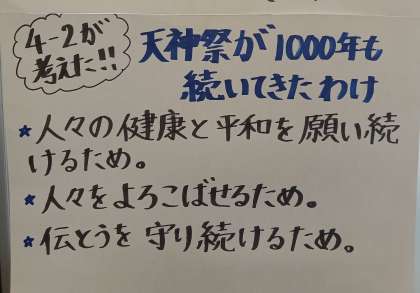 4-2が
考えた!!
天神祭が1000年も
続いてきたわけ
★人々の健康と平和を願い続
けるため。
★人々をよろこばせるため。
★伝とうを守り続けるため。